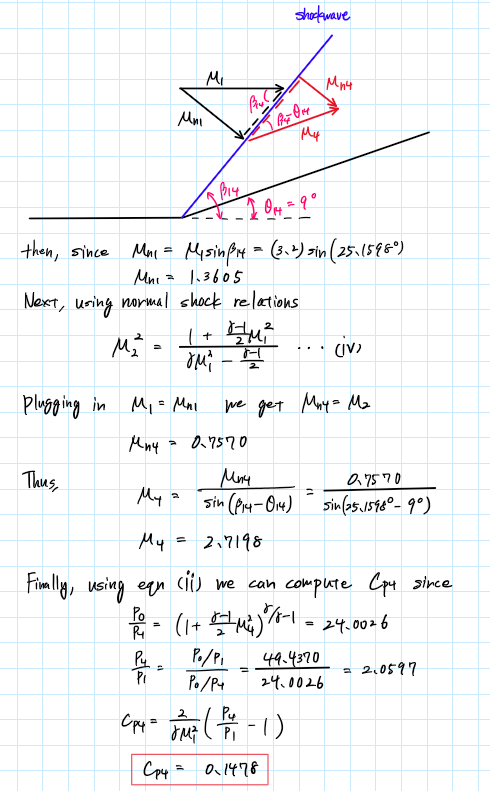 shockwave
M₁
Mn1
β14
Mn4
β14-θ14
M4
β14
θ14 = 9°
then, since Mn1 = M₁sinβ14 = (3.2) sin(25.1598°)
Mn1 = 1.3605
Next, using normal shock relations
M₂² = (1 + (γ-1)/2 M₁²) / (γM₁² - (γ-1)/2) ... (iv)
Plugging in M₁ = Mn1 we get Mn4 = M₂
Mn4 = 0.7570
Thus,
M4 = Mn4 / sin(β14-θ14) = 0.7570 / sin(25.1598° - 9°)
M4 = 2.7198
Finally, using eqn (ii) we can compute Cp4 since
P0/P4 = (1 + (γ-1)/2 M4²)^(γ/γ-1) = 24.0026
P4/P1 = (P0/P1) / (P0/P4) = 49.4370 / 24.0026 = 2.0597
Cp4 = 2/(γM₁²) (P4/P1 - 1)
Cp4 = 0.1478